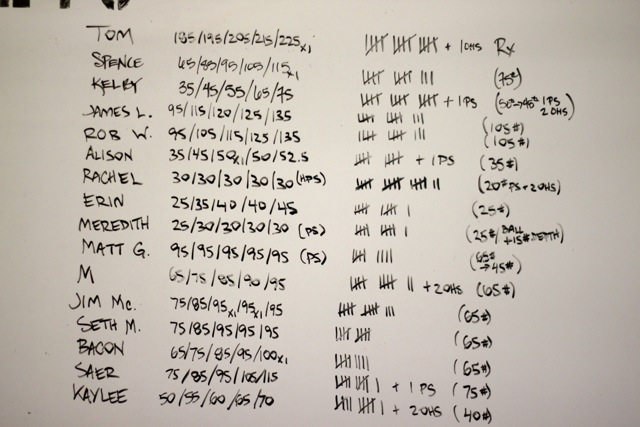 TOM 185/195/205/215/225x1 卌 卌 卌 + 10HS Rx
SPENCE 65/85/95/105/115x1 卌 卌 III (75#)
KELBY 35/45/55/65/75 卌 卌 卌 + 1PS (50#→45# 1PS 2OHS)
JAMES L. 95/115/120/125/135 卌 卌 III (105#)
ROB W. 95/105/115/125/135 卌 卌 III (105#)
ALISON 35/45/50x1/50/52.5 卌 卌 + 1PS (35#)
RACHEL 30/30/30/30/30 (HPS) 卌 卌 卌 II (20# PS + 2OHS)
ERIN 25/35/40/40/45 卌 卌 I (25#)
MEREDITH 25/30/30/30/30 (PS) 卌 卌 I (25#/BALL +15# DEPTH)
MATT G. 95/95/95/95/95 (PS) 卌 IIII (65# →45#)
M 65/75/85/90/95 卌 卌 II + 2OHS (65#)
JIM MC. 75/85/95x1/95x1/95 卌 卌 III (65#)
SETH M. 75/85/95/95/95 卌 卌 (65#)
BACON 65/75/85/95/100x1 卌 IIII (65#)
SAER 75/85/95/105/115 卌 卌 I + 1PS (75#)
KAYLEE 50/55/60/65/70 卌 卌 I + 2OHS (40#)